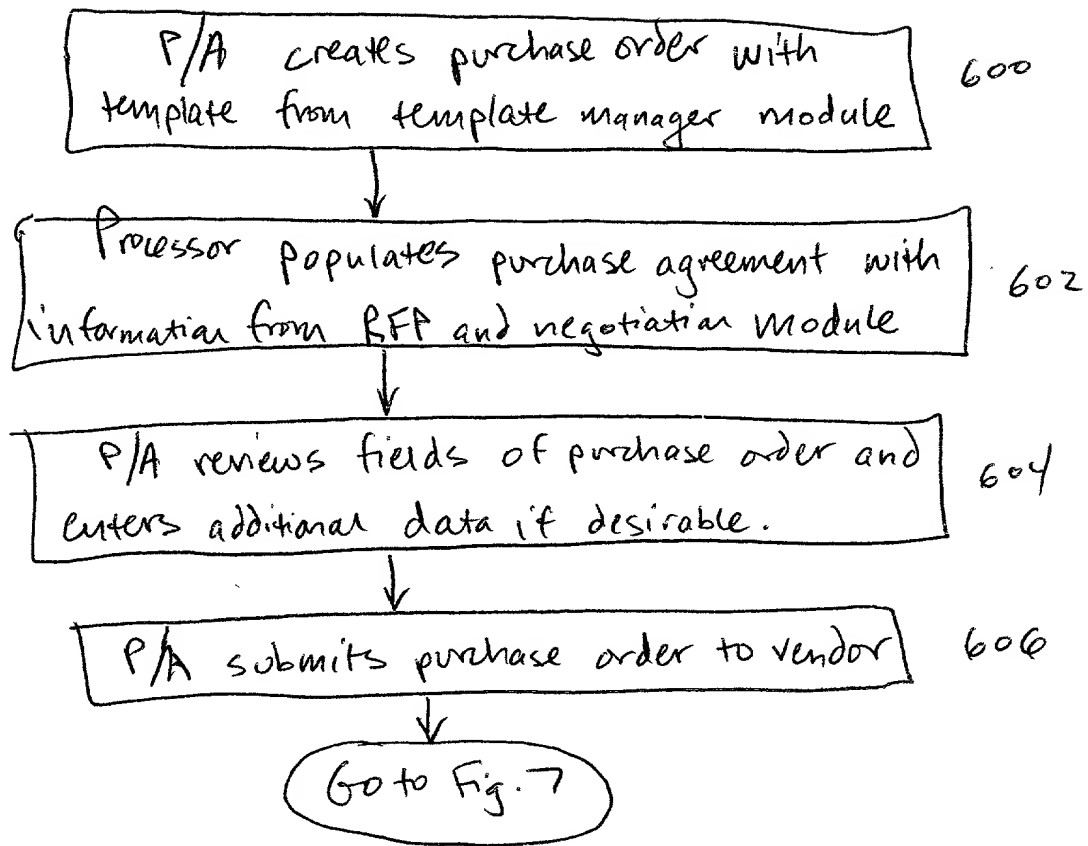 P/A creates purchase order with
template from template manager module
600
Processor populates purchase agreement with
information from RFP and negotiation module
602
P/A reviews fields of purchase order and
enters additional data if desirable.
604
P/A submits purchase order to vendor
606
Go to Fig. 7